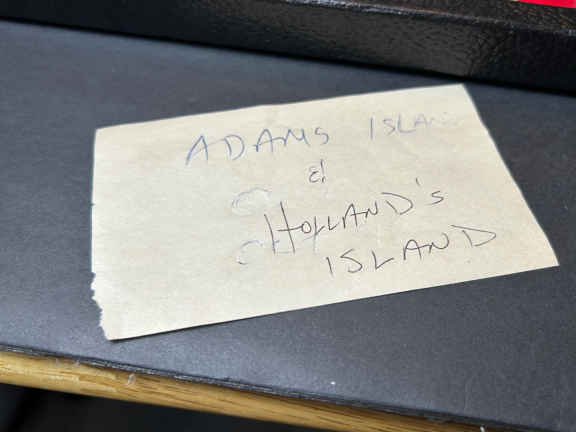 ADAMS ISLAND
&
HOLLAND'S
ISLAND